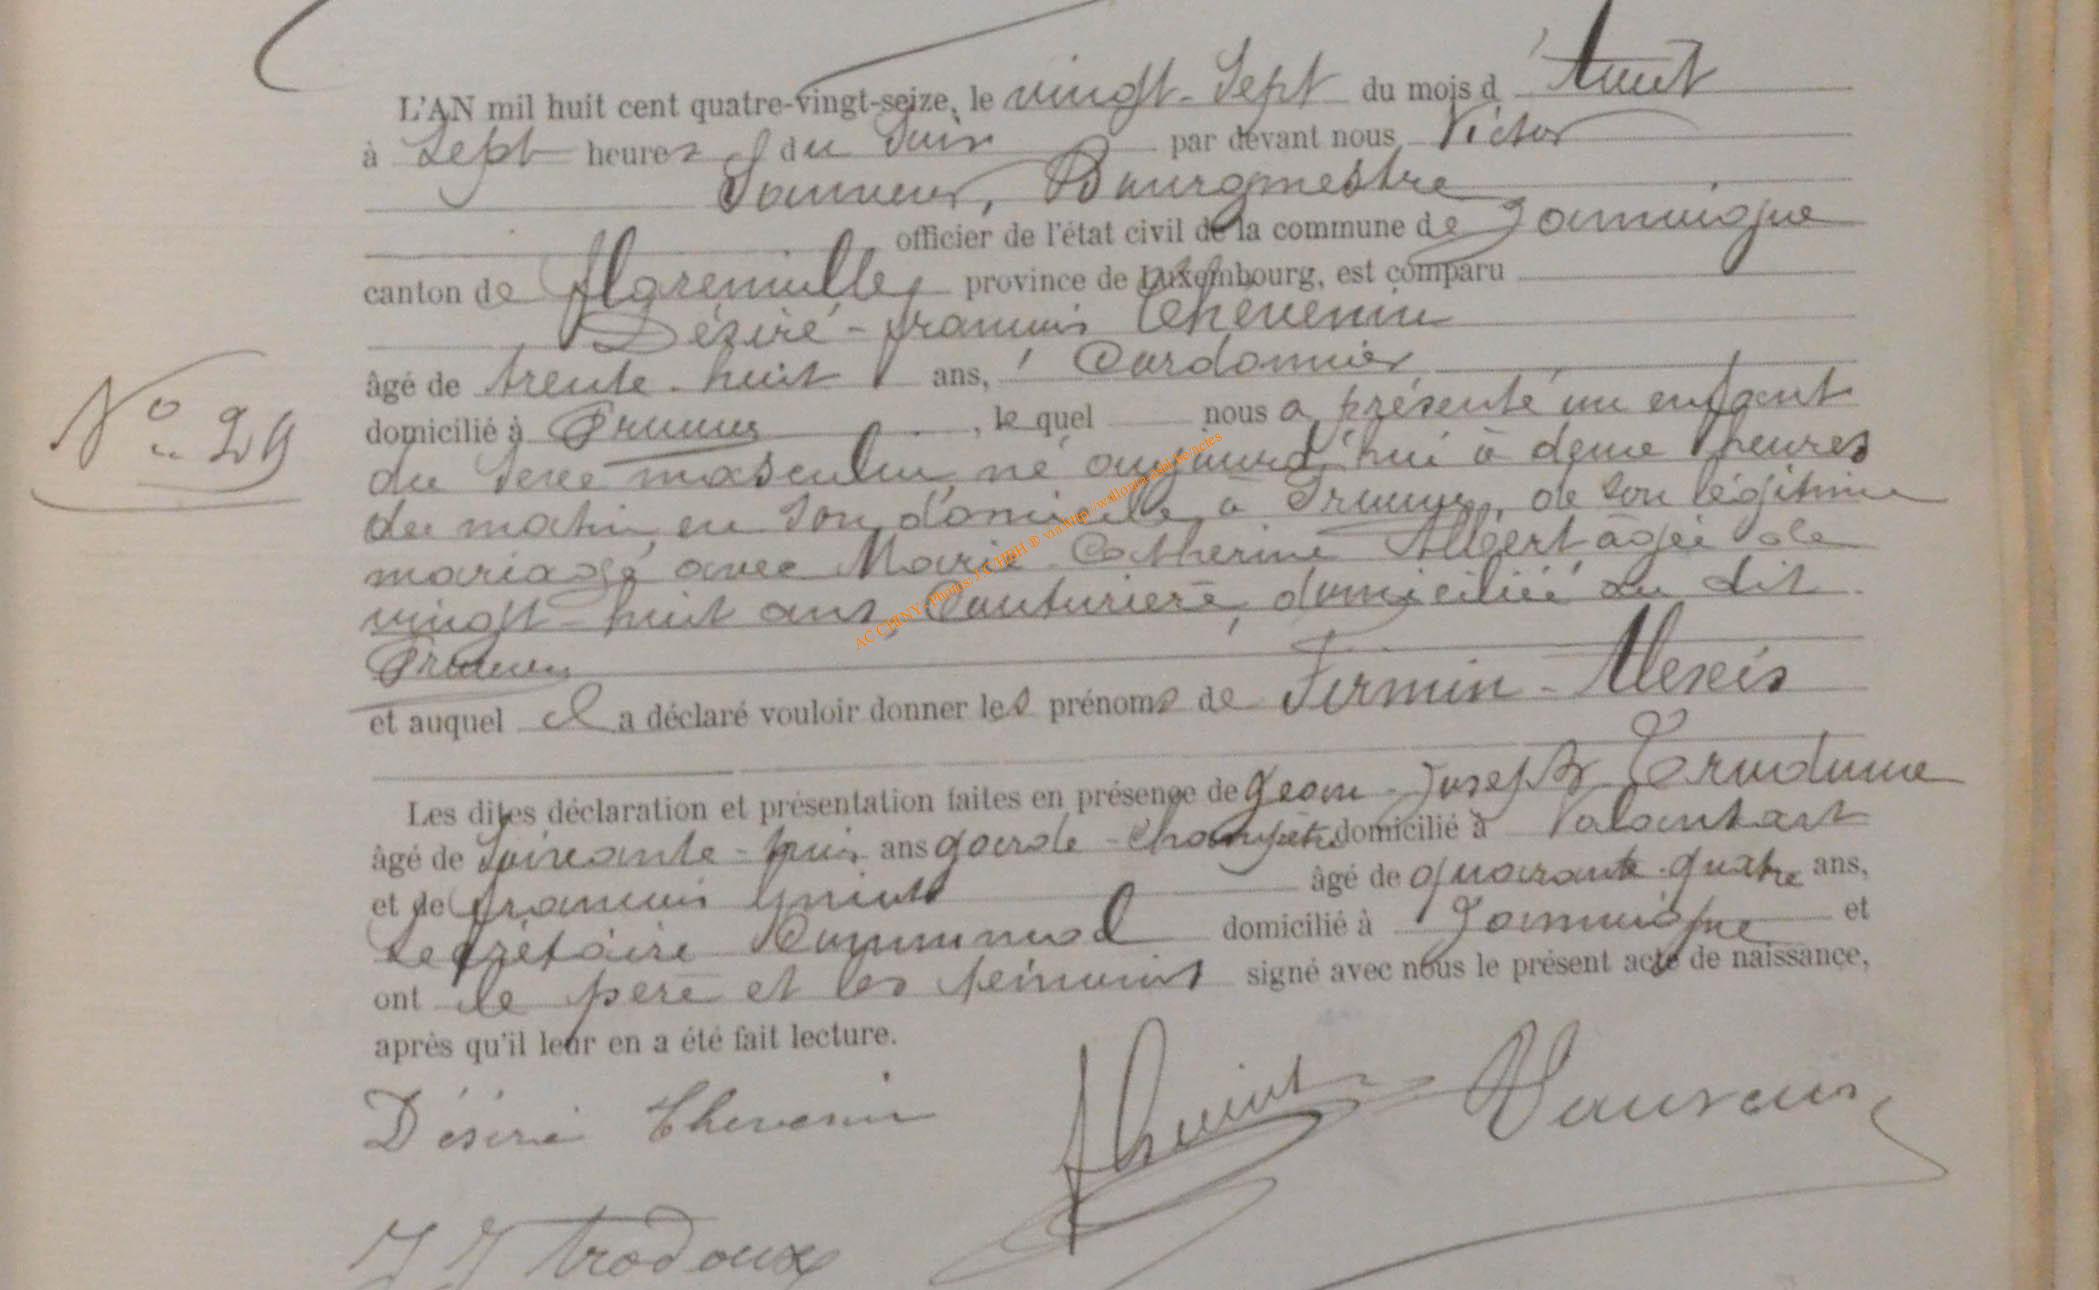 L'AN mil huit cent quatre-vingt-seize, le vingt-Sept du mois d'Août
à Sept heures du Soir par devant nous Victor
Sauveur, Bourgmestre
officier de l'état civil de la commune de Jamoigne
canton de Florenville, province de Luxembourg, est comparu
Désiré-François Thévenin
âgé de trente-huit ans, Cordonnier
domicilié à Prouvy, le quel nous a présenté un enfant
du Sexe masculin, né aujourd'hui à deux heures
du matin, en son domicile à Prouvy, de son légitime
mariage avec Marie-Catherine Albert âgée de
vingt-huit ans, Couturière, domiciliée au dit
Prouvy
et auquel il a déclaré vouloir donner les prénoms de Firmin-Alexis
Les dites déclaration et présentation faites en présence de Jean-Joseph
âgé de Soixante- ans garde-Champêtre domicilié à Valansart
et de François âgé de quarante-quatre ans,
Secrétaire Communal domicilié à Jamoigne et
ont le père et les témoins signé avec nous le présent acte de naissance,
après qu'il leur en a été fait lecture.
No 29
Désiré Thevenin
VSauveur
JJ Trodoux
AC CHINY - Photos J.C HBH ® via http://wallonia.asbl.be actes